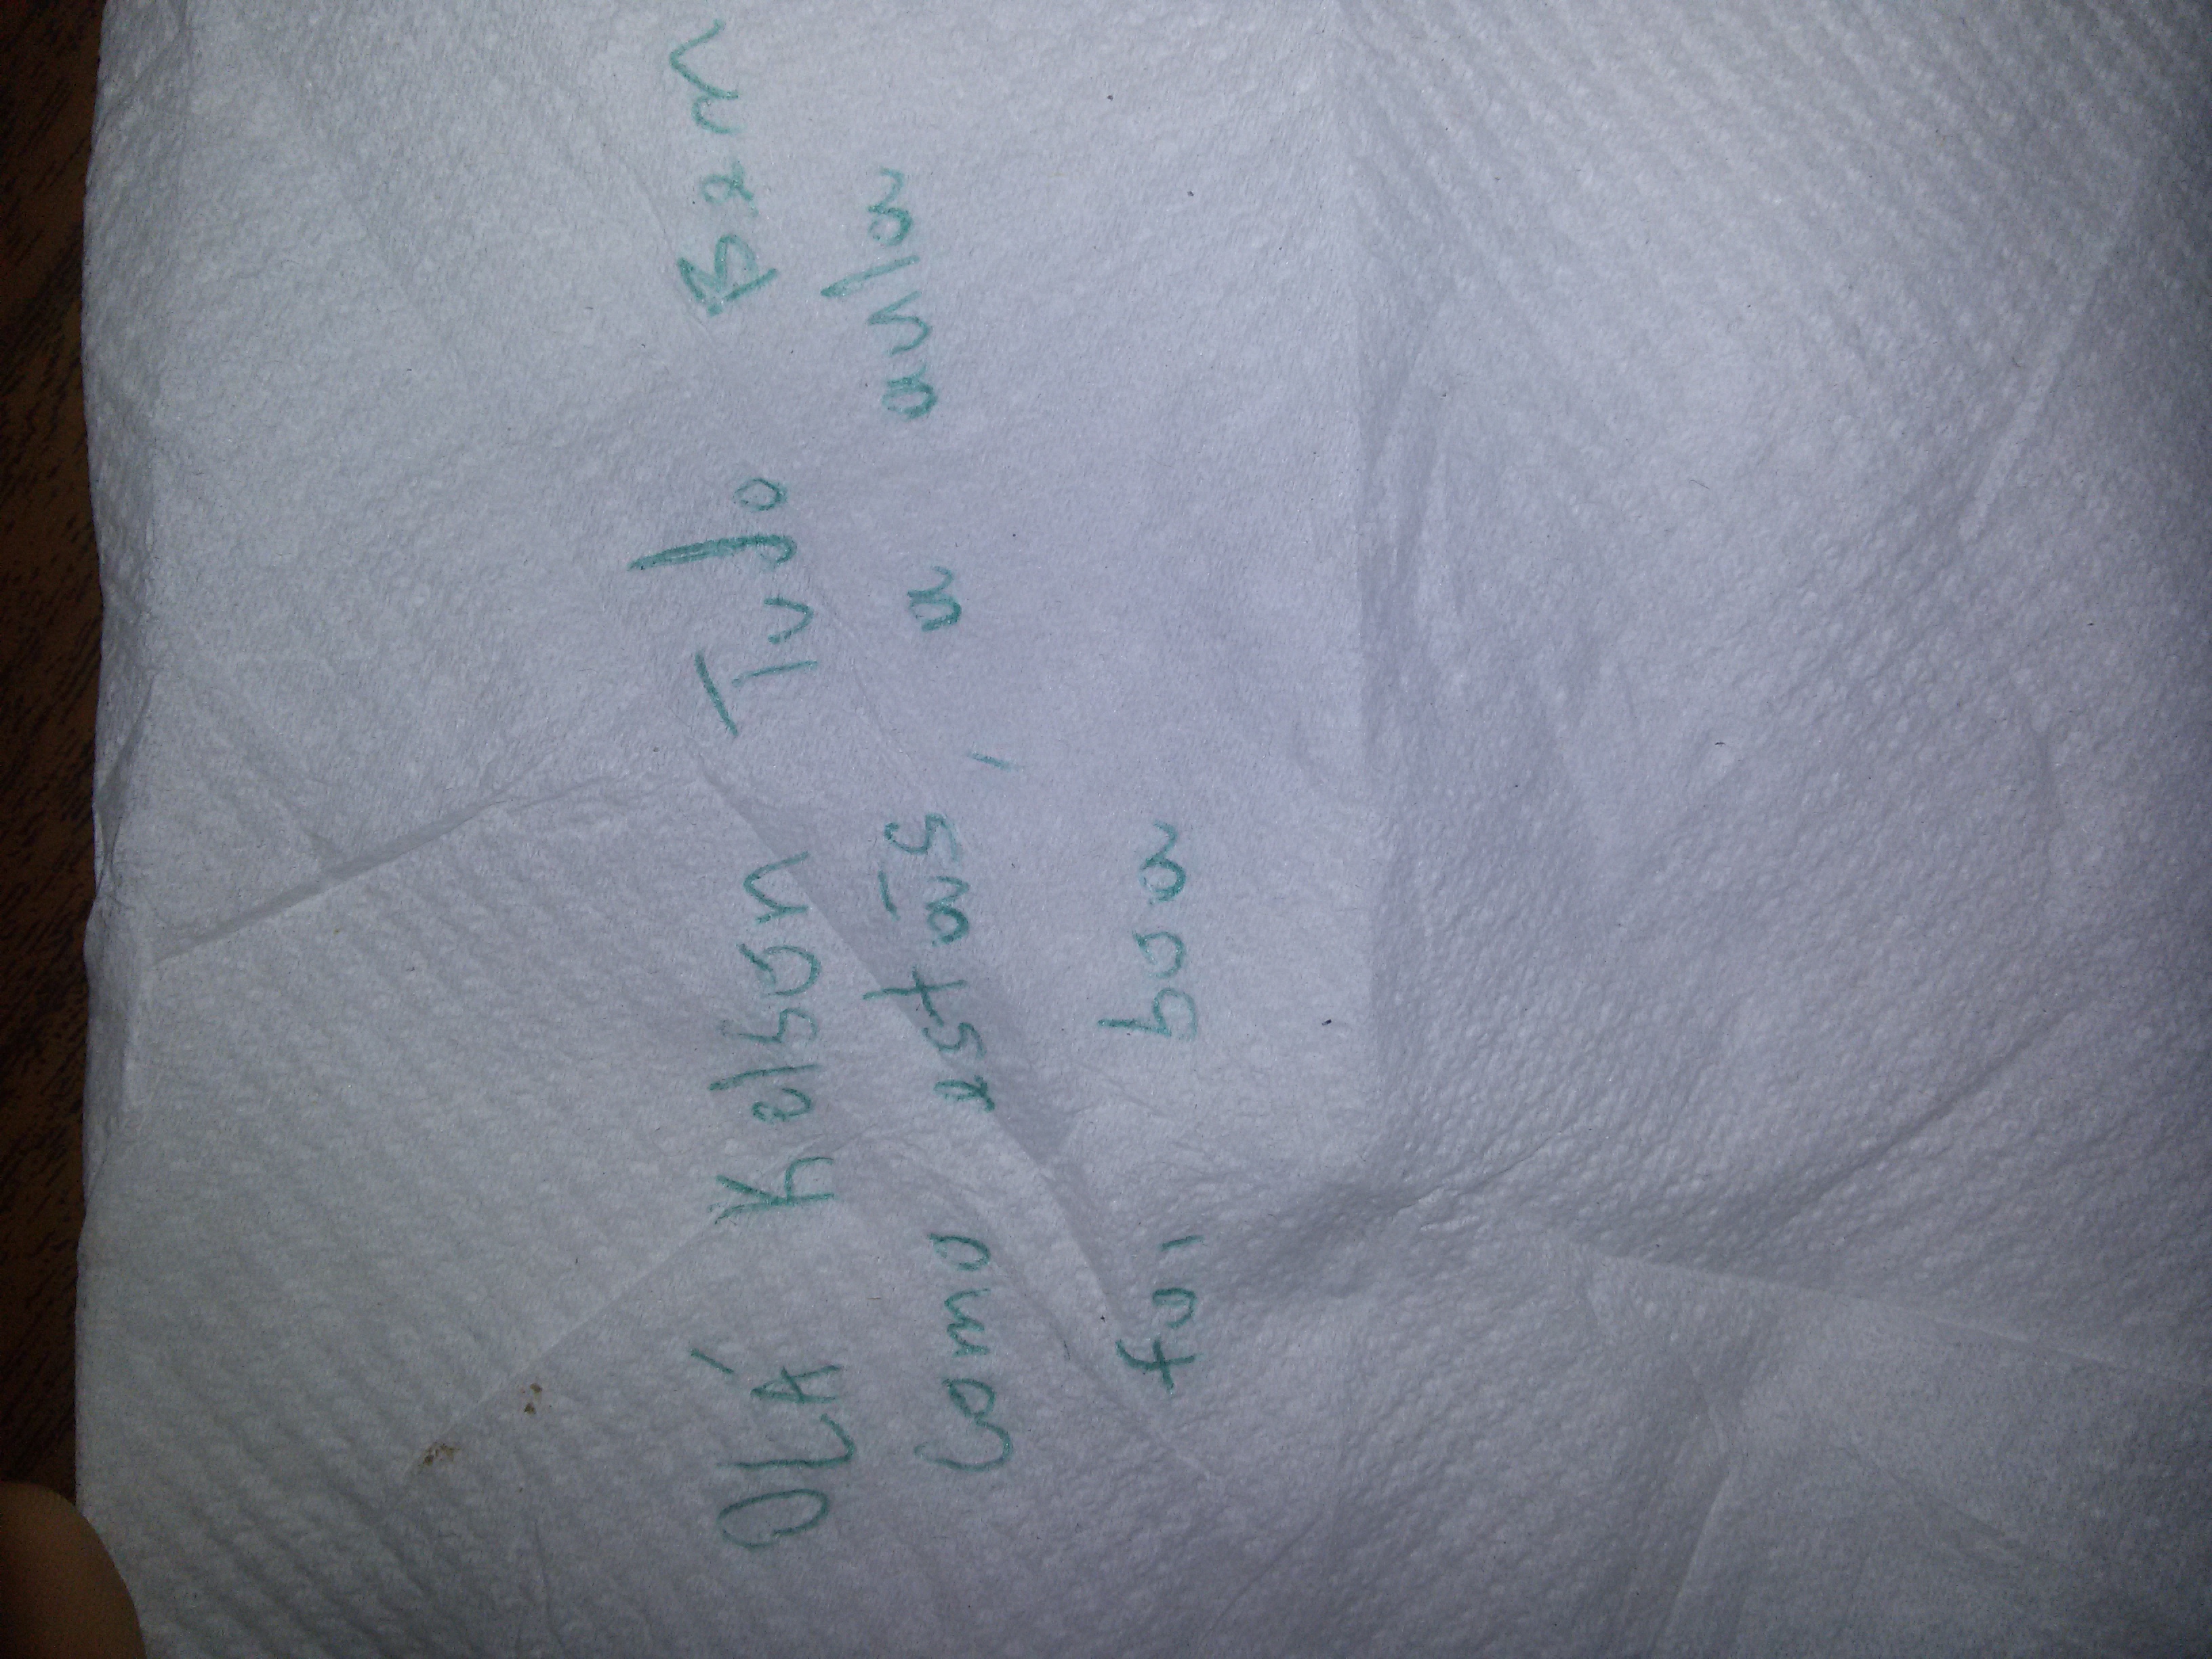 OLÁ Kelson Tudo Bem
Como estás, a aula
foi boa